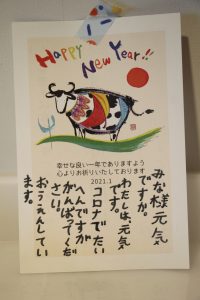 Happy New Year!!
幸せな良い一年でありますよう
心よりお祈りいたしております
2021.1
みな様元気
ですか。
わたしは、元気
です。
コロナでたい
へんですが
がんばってくだ
さい。
おうえんしてい
ます。